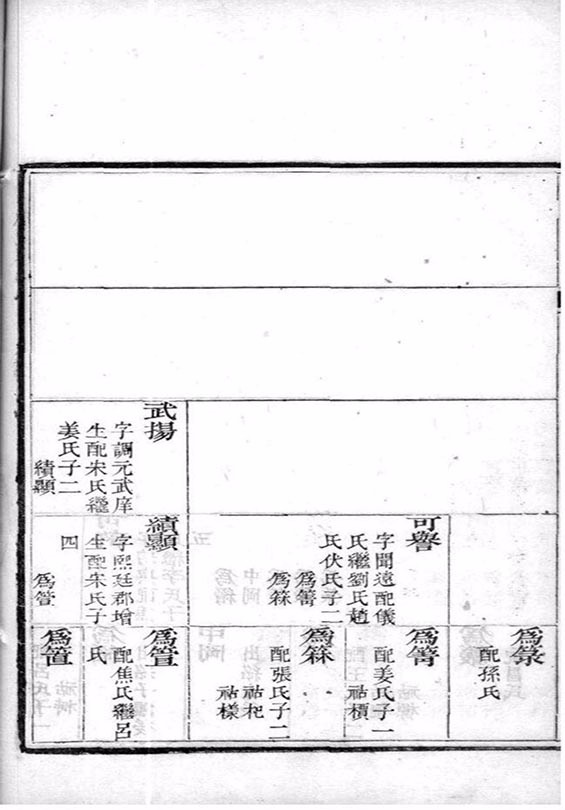 武揚
字調元武庠
生配宋氏繼
姜氏子二
績顯
可譽
字聞遠配儀
氏繼劉氏趙
氏伏氏子二
爲箐
爲箖
績顯
字熙廷郡增
生配朱氏子
四
爲
爲
配孫氏
爲箐
配姜氏子一
祐槓
爲箖
配張氏子二
祐杞
祐樣
爲
配焦氏繼呂
氏
爲